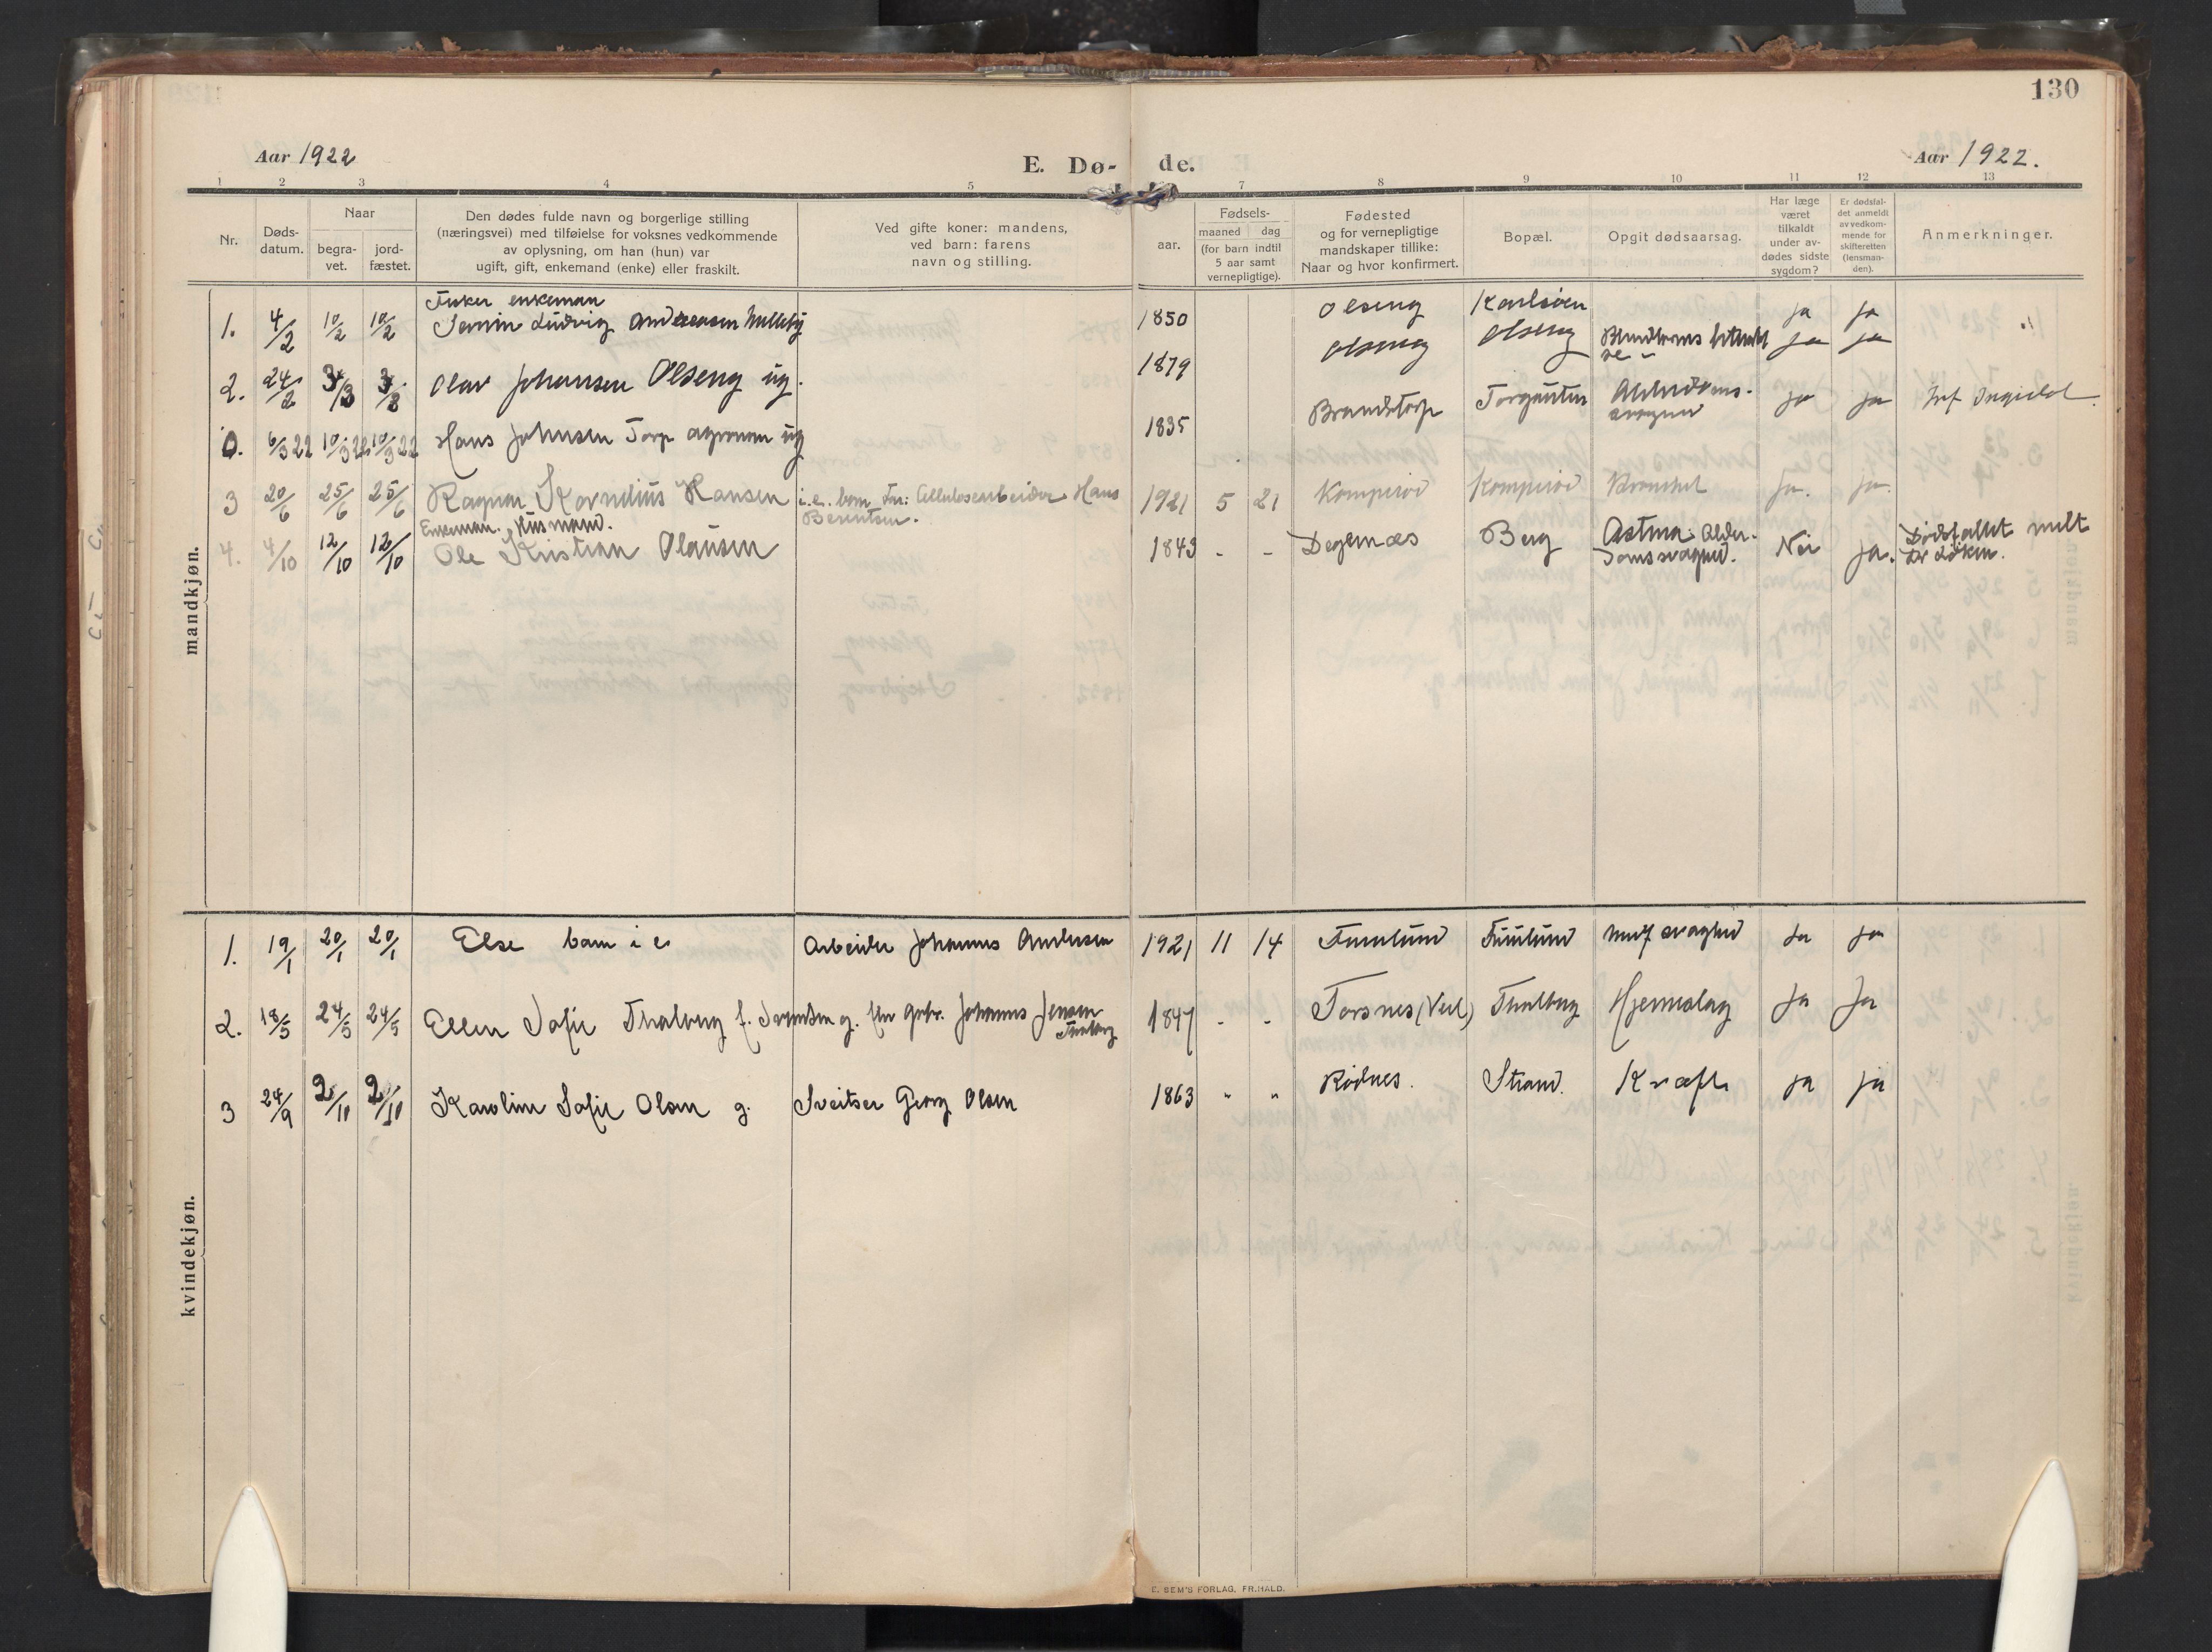 130
Aar 1922
E. Dø-
de.
Aar 1922.
1 2 3 4 5 7 8 9 10 11 12 13
Nr.
Døds-
datum.
Naar
begra-
vet.
jord-
fæstet.
Den dødes fulde navn og borgerlige stilling
(næringsvei) med tilføielse for voksnes vedkommende
av oplysning, om han (hun) var
ugift, gift, enkemand (enke) eller fraskilt.
Ved gifte koner: mandens,
ved barn: farens
navn og stilling.
aar.
Fødsels-
maaned dag
(for barn indtil
5 aar samt
vernepligtige).
Fødested
og for vernepligtige
mandskaper tillike:
Naar og hvor konfirmert.
Bopæl.
Opgit dødsaarsag.
Har læge
været
tilkaldt
under av-
dødes sidste
sygdom?
Er dødsfal-
det anmeldt
av vedkom-
mende for
skifteretten
(lensman-
den).
Anmerkninger.
mandkjøn.
Fisker enkeman
1. 4/2 10/2 10/2 Ludvig Andreasen 1850 Olseng ja ja
2. 24/2 3/3 Olav Johansen Olseng ug. 1879 Olseng Olseng ja ja
0. 6/3 22 10/3 22 10/3 22 Hans Johnsen Torp agronom ug 1835 Brandstorp Torgauten ja ja
3 20/6 25/6 25/6 Ragnar Kornelius Hansen i.e. barn Far: Cellulosearbeider Hans 1921 5 21 Komperød Komperød ja. ja.
Berentsen.
Enkeman. Husmand.
4. 4/10 12/10 12/10 Ole Kristian Olausen 1843 - - Degernæs Berg Astma. Alder- Nei ja. Dødsfallet meldt
domssvaghed.
kvindekjøn.
1. 19/1 20/1 20/1 Else barn i e. Arbeider Johannes Andersen 1921 11 14 Furulund Furulund svaghed Ja ja
2. 18/5 24/5 24/5 Ellen Sofie Thalberg f. Svendsen g. Johannes Jensen 1847 - - Torsnes Thalberg Hjerneslag Ja Ja
3 24/9 2/10 2/10 Karoline Sofie Olsen g. Sveitser Georg Olsen 1863 " " Rødnes. Strand. Kræft ja ja
E. SEM'S FORLAG, FR.HALD.